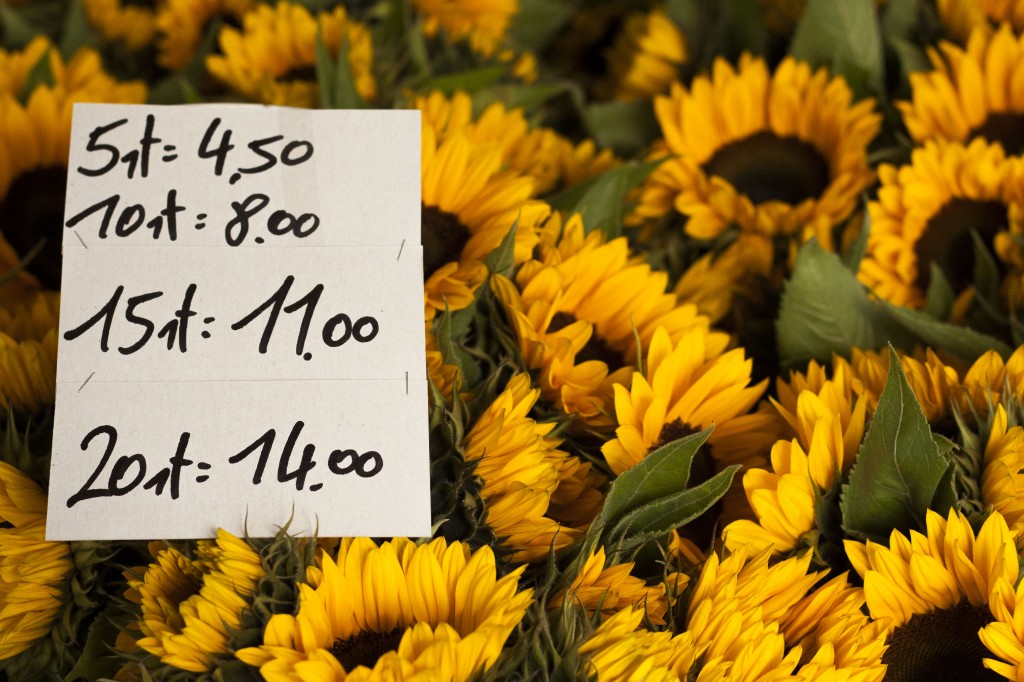 5st= 4,50
10st: 8.00
15st: 11.00
20st= 14.00